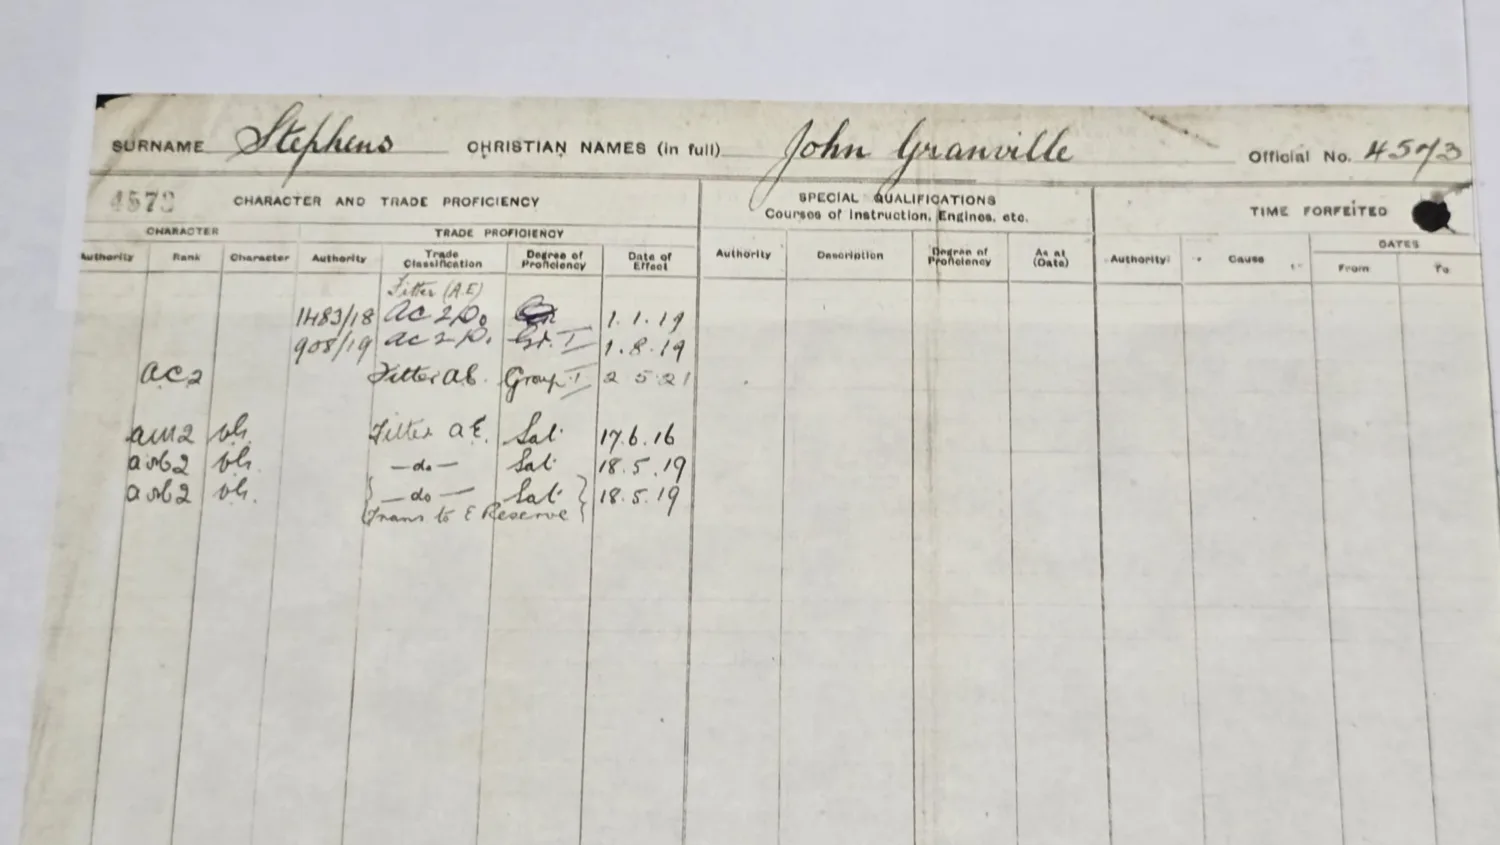 SURNAME Stephens CHRISTIAN NAMES (in full) John Granville Official No. 4573
4573 CHARACTER AND TRADE PROFICIENCY SPECIAL QUALIFICATIONS Courses of Instruction, Engines, etc. TIME FORFEITED
CHARACTER TRADE PROFICIENCY DATES
Authority Rank Character Authority Trade Classification Degree of Proficiency Date of Effect Authority Description Degree of Proficiency As at (Date) Authority Cause From To
Fitter (A.E)
1483/18 AC 2 1.1.19
908/19 AC 2 Gr. I 1.8.19
AC2 Fitter AE. Group I 2 5 21
am2 vh. Fitter AE. Sat. 17.6.16
vh. —do— Sat 18.5.19
vh. —do— Sat 18.5.19
Trans to E Reserve